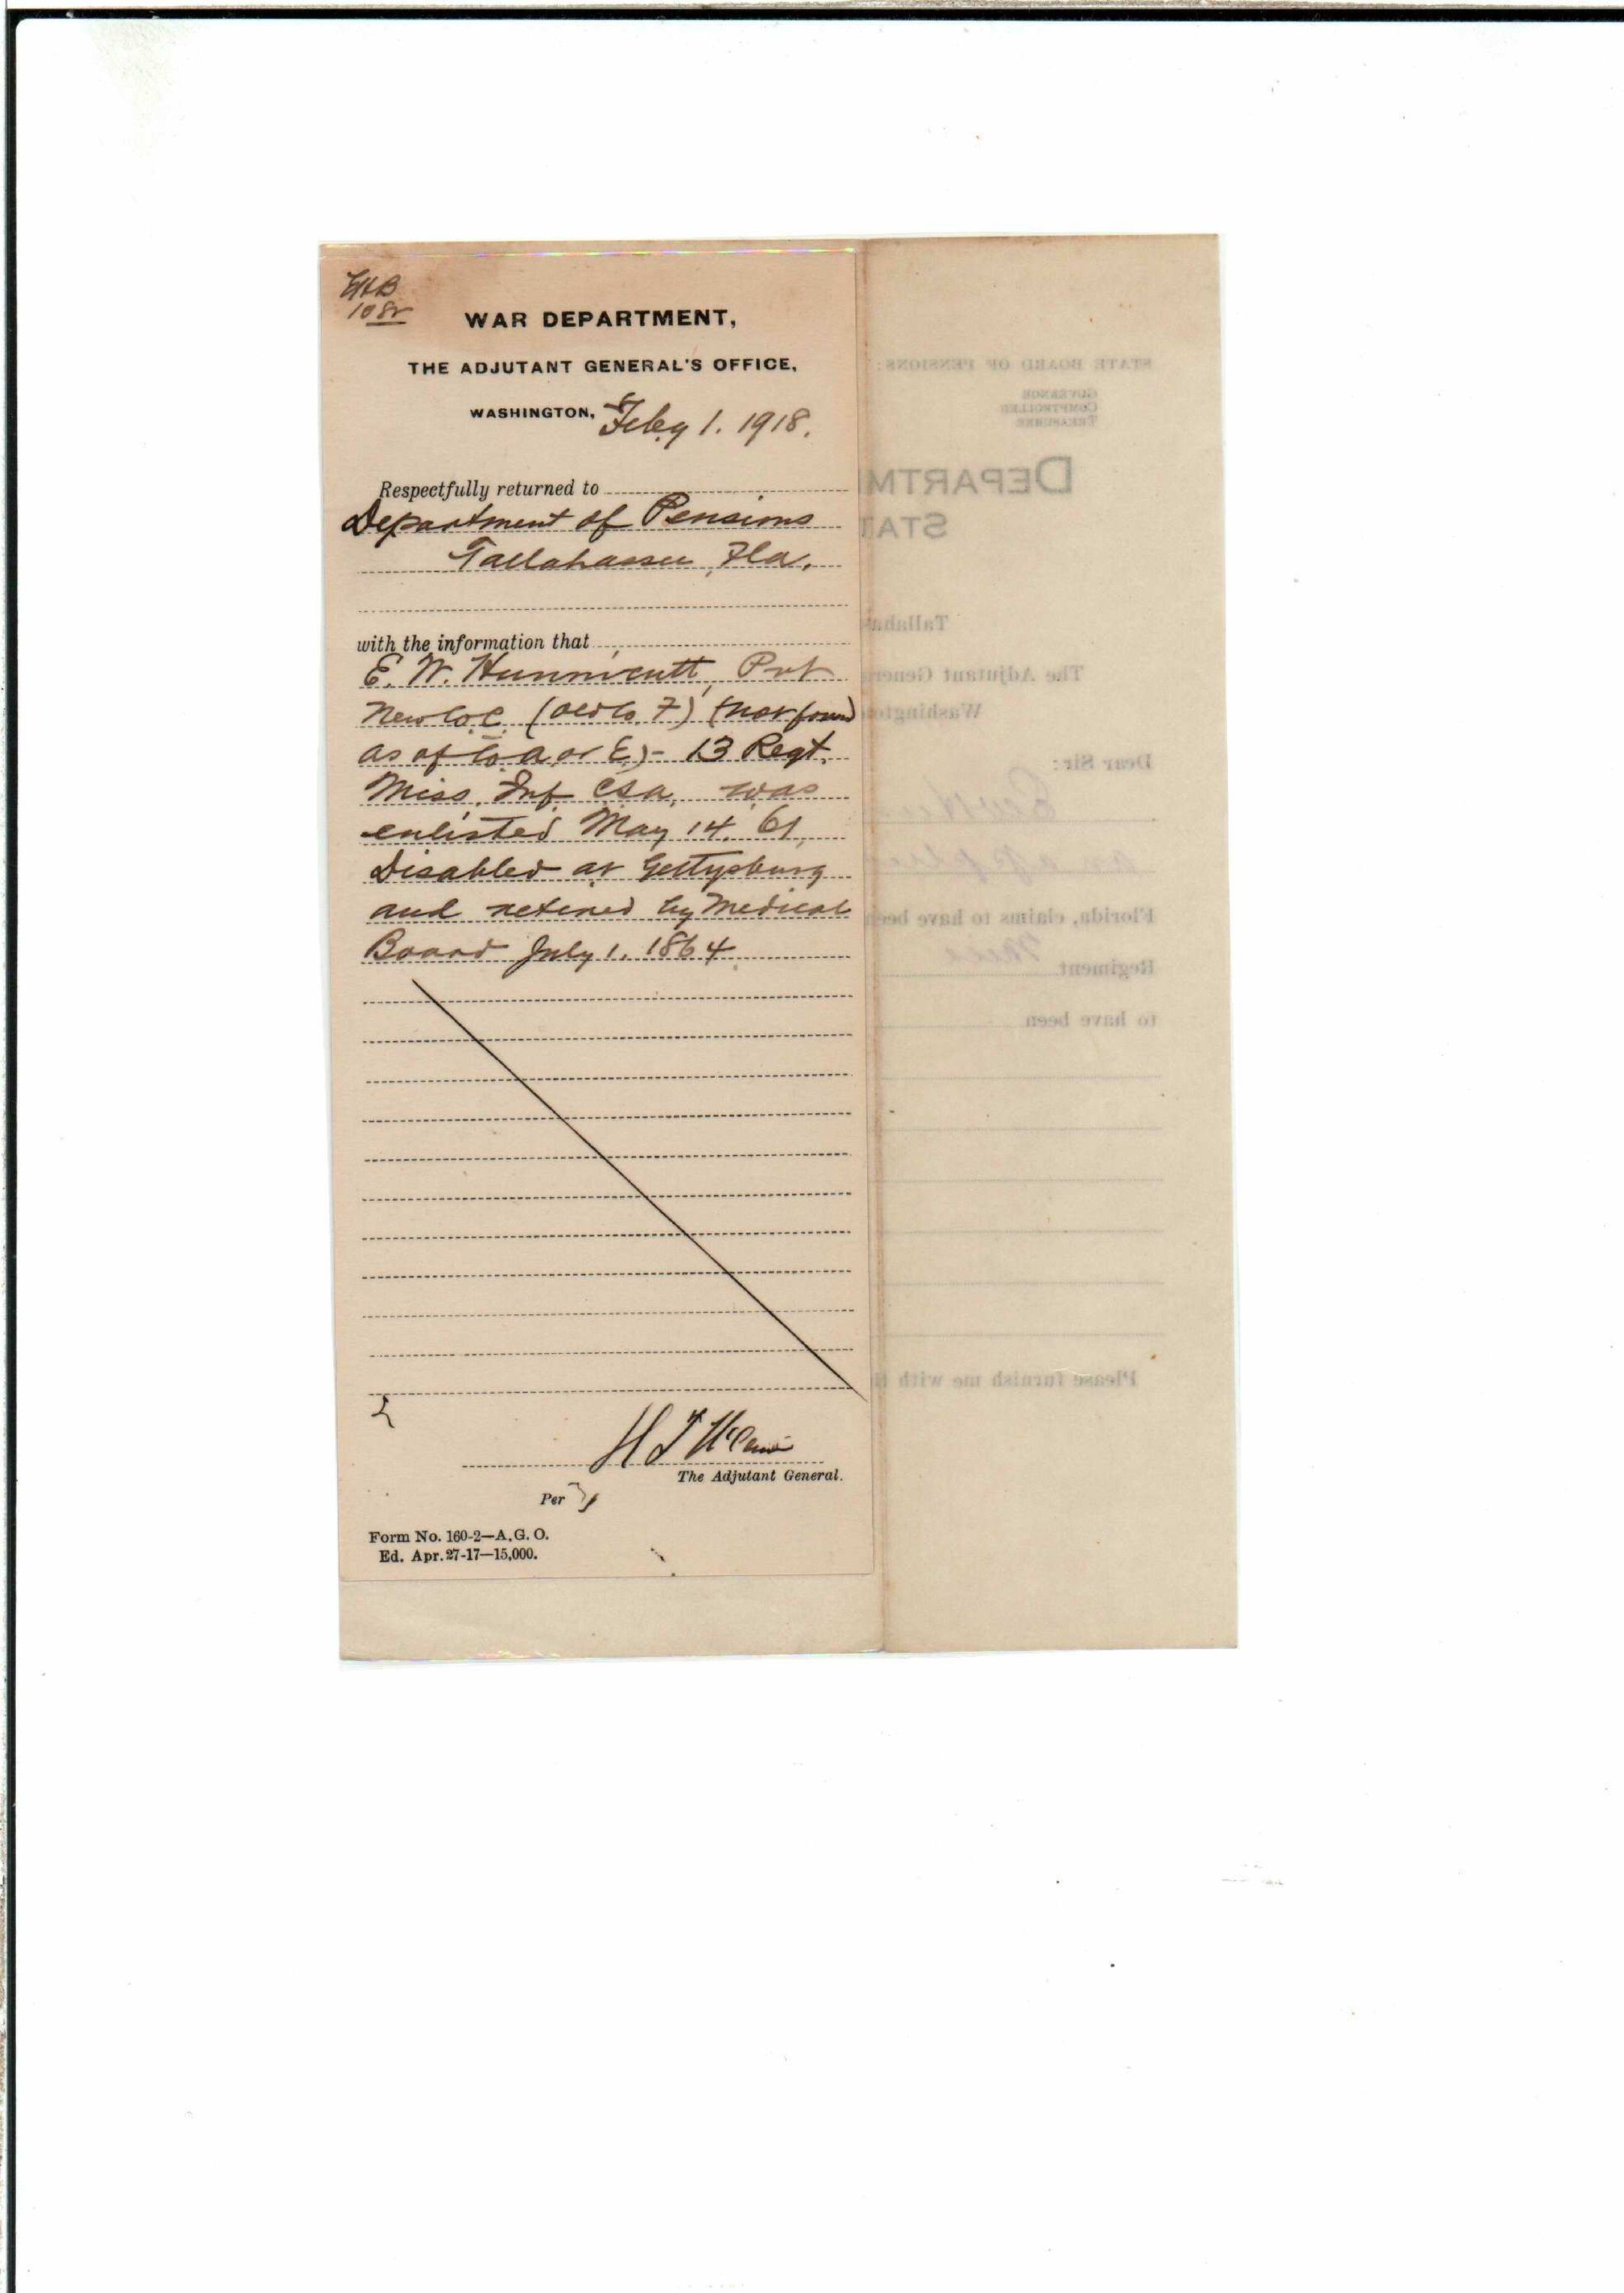 WAR DEPARTMENT,
THE ADJUTANT GENERAL'S OFFICE,
WASHINGTON, Feby 1. 1918.
Respectfully returned to
Department of Pensions
Tallahassee, Fla.
with the information that
E. W. Hunnicutt, Pvt
New Co. C. (old Co. F) (not found
as of Co A or E) - 13 Regt.
Miss. Inf CSA. was
enlisted May 14. 61,
Disabled at Gettysburg
and retired by Medical
Board July 1. 1864
The Adjutant General.
Per
Form No. 160-2—A.G.O.
Ed. Apr. 27-17—15,000.
STATE BOARD OF PENSIONS:
GOVERNOR
COMPTROLLER
TREASURER
DEPARTM
STAT
Tallaha
The Adjutant Gener
Washingto
Dear Sir:
Florida, claims to have bee
Regiment
to have been
Please furnish me with